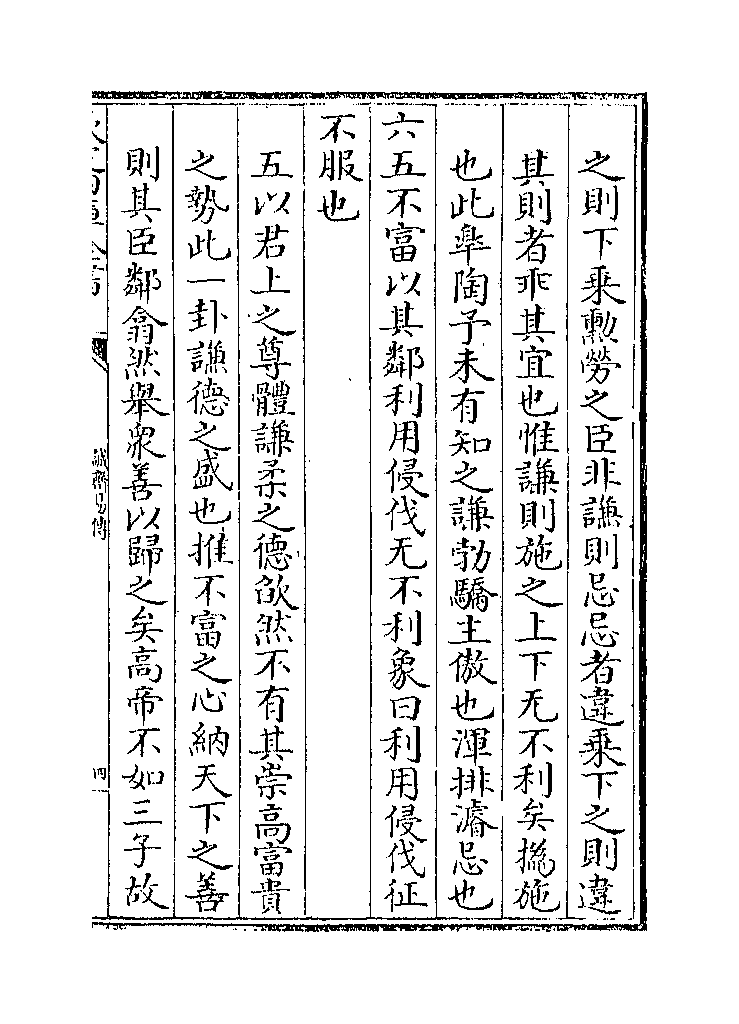 之則下乗勲勞之臣非謙則忌忌者違乗下之則違
其則者乖其宜也惟謙則施之上下无不利矣撝施
也此臯陶予未有知之謙勃驕主傲也渾排濬忌也
六五不富以其鄰利用侵伐无不利象曰利用侵伐征
不服也
五以君上之尊體謙柔之德欿然不有其崇高富貴
之勢此一卦謙德之盛也推不富之心納天下之善
則其臣鄰翕然舉衆善以歸之矣高帝不如三子故
誠齋易傳
四